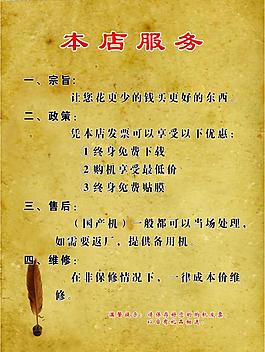 本店服务
一、宗旨：
让您花更少的钱买更好的东西
二、政策：
凭本店发票可以享受以下优惠：
1 终身免费下载
2 购机享受最低价
3 终身免费贴膜
三、售后：
（国产机）一般都可以当场处理，
如需要返厂，提供备用机。
四、维修：
在非保修情况下，一律成本价维
修。
温馨提示：请保存好您的购机发票